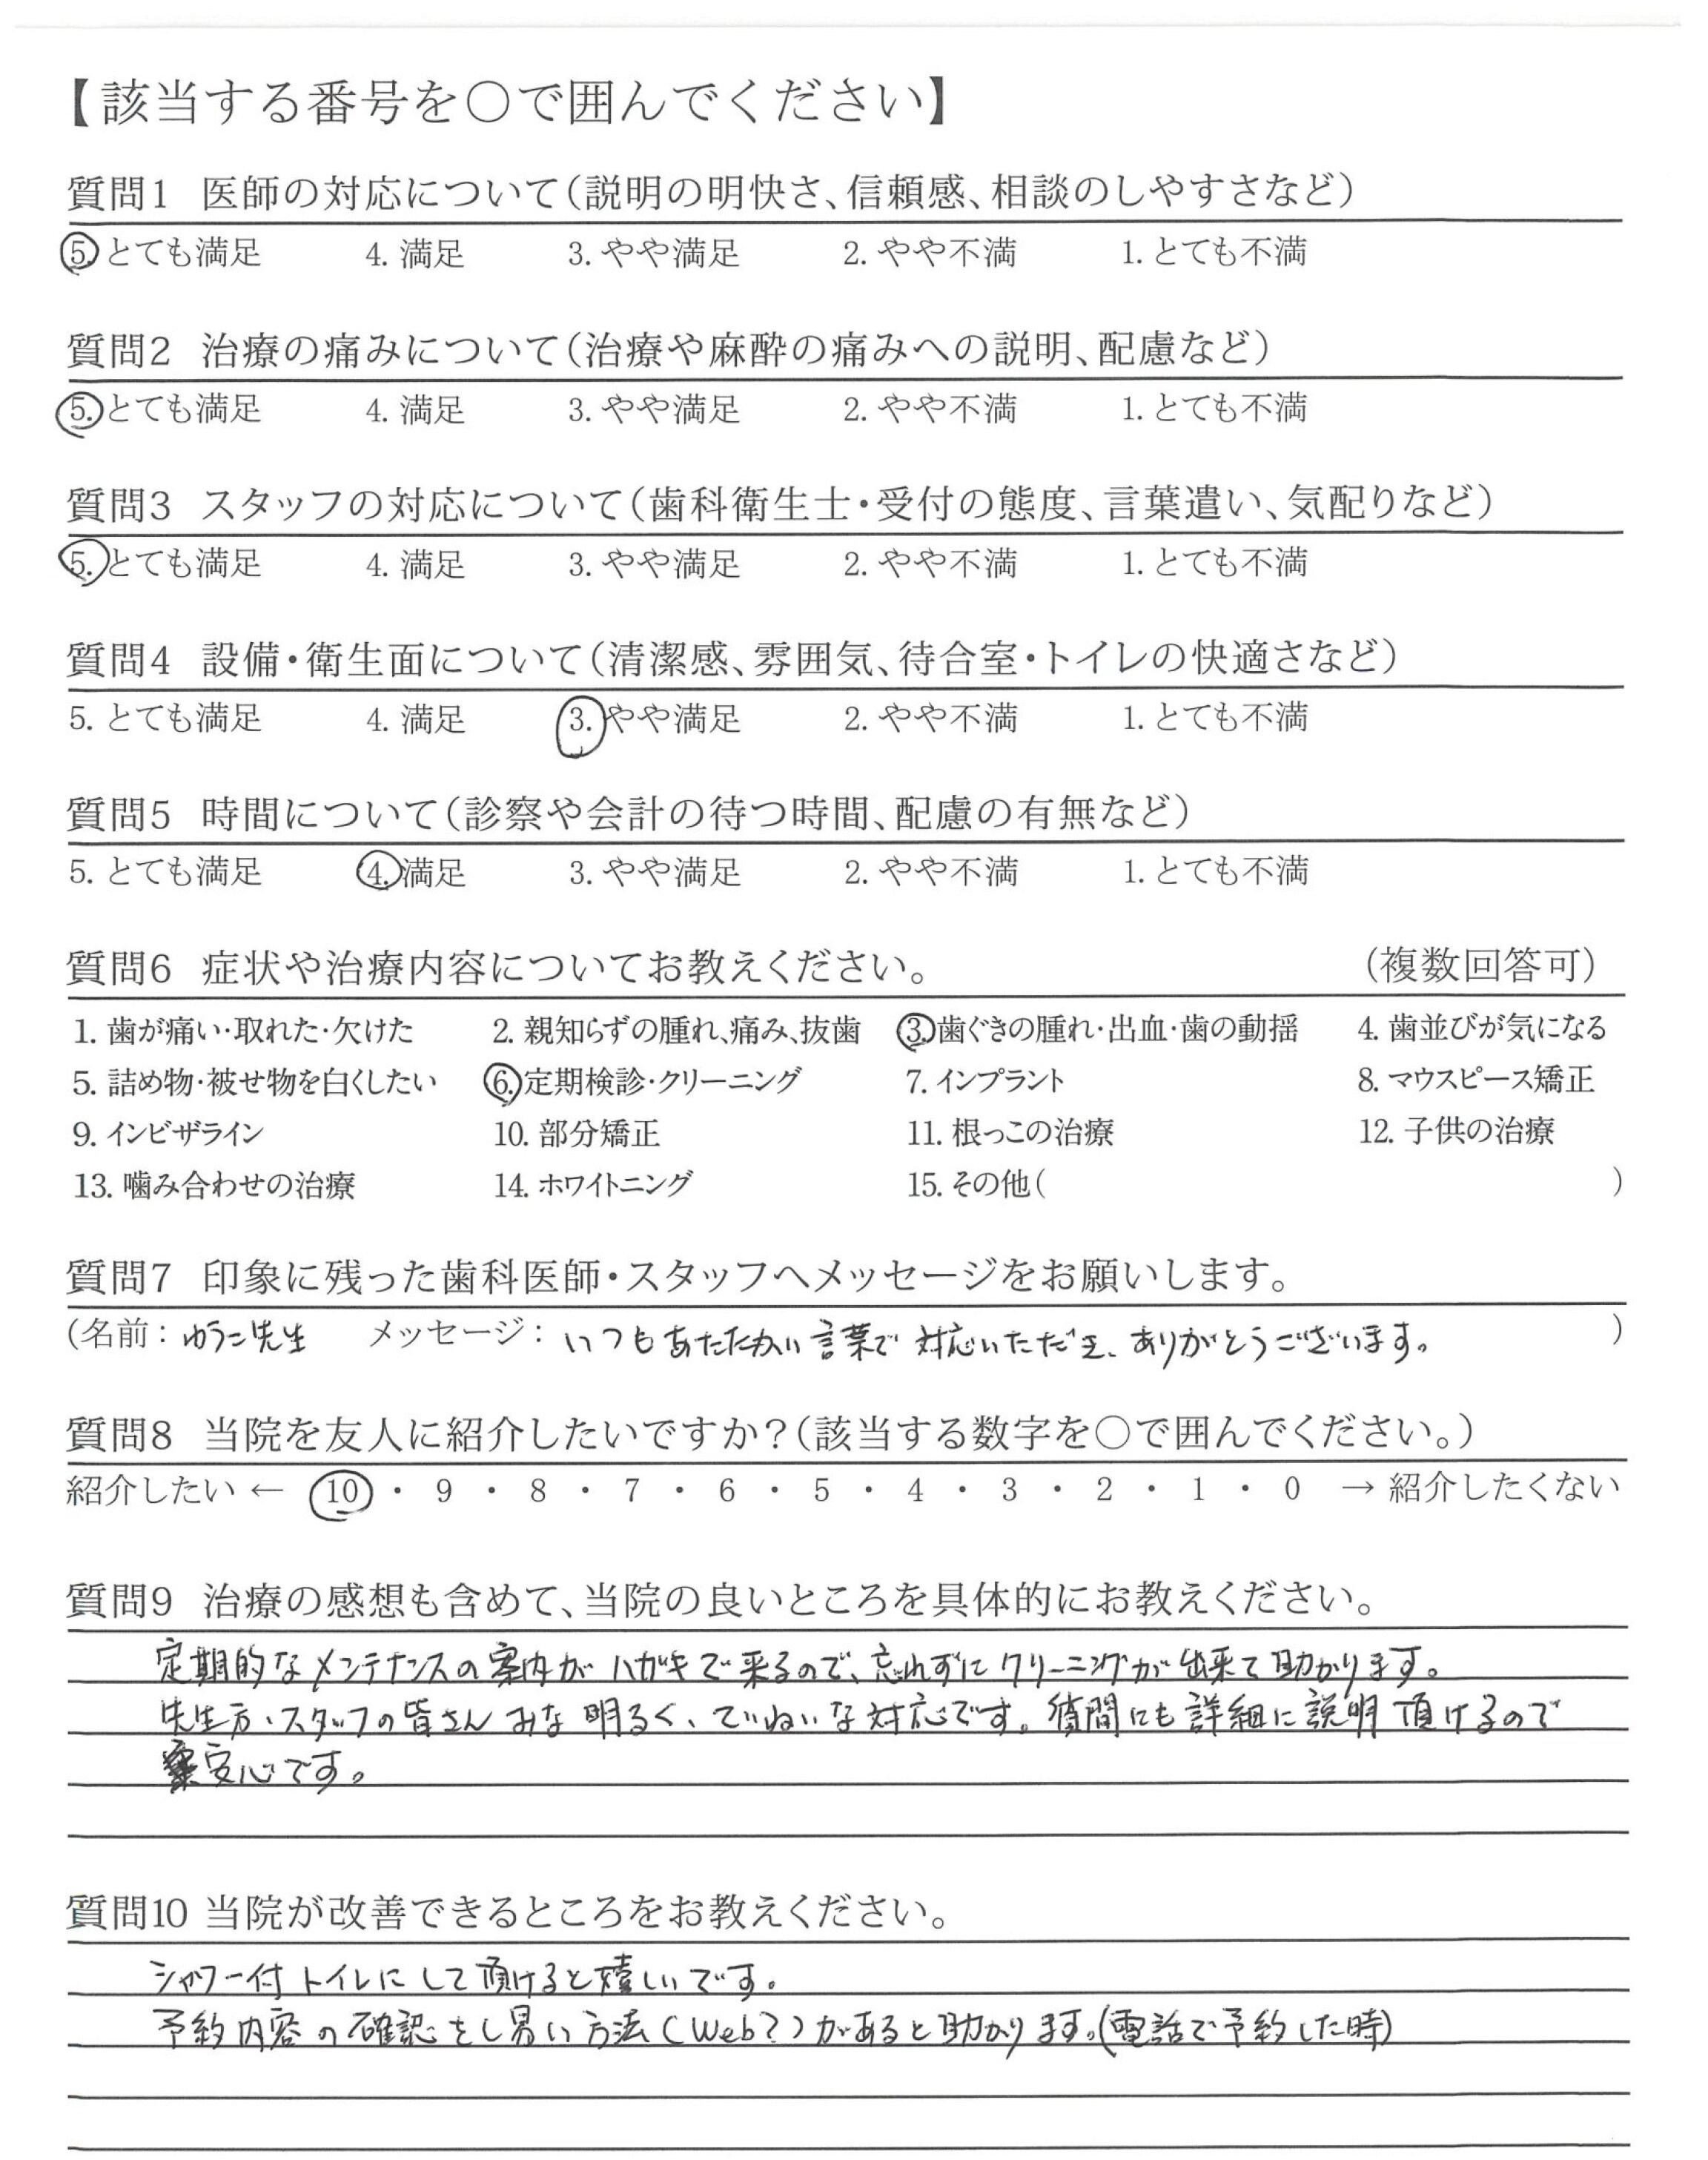 【該当する番号を○で囲んでください】
質問1 医師の対応について(説明の明快さ、信頼感、相談のしやすさなど)
5. とても満足 4. 満足 3. やや満足 2. やや不満 1. とても不満
質問2 治療の痛みについて(治療や麻酔の痛みへの説明、配慮など)
5. とても満足 4. 満足 3. やや満足 2. やや不満 1. とても不満
質問3 スタッフの対応について(歯科衛生士・受付の態度、言葉遣い、気配りなど)
5. とても満足 4. 満足 3. やや満足 2. やや不満 1. とても不満
質問4 設備・衛生面について(清潔感、雰囲気、待合室・トイレの快適さなど)
5. とても満足 4. 満足 3. やや満足 2. やや不満 1. とても不満
質問5 時間について(診察や会計の待つ時間、配慮の有無など)
5. とても満足 4. 満足 3. やや満足 2. やや不満 1. とても不満
質問6 症状や治療内容についてお教えください。 (複数回答可)
1. 歯が痛い・取れた・欠けた 2. 親知らずの腫れ、痛み、抜歯 3. 歯ぐきの腫れ・出血・歯の動揺 4. 歯並びが気になる
5. 詰め物・被せ物を白くしたい 6. 定期検診・クリーニング 7. インプラント 8. マウスピース矯正
9. インビザライン 10. 部分矯正 11. 根っこの治療 12. 子供の治療
13. 噛み合わせの治療 14. ホワイトニング 15. その他( )
質問7 印象に残った歯科医師・スタッフへメッセージをお願いします。
(名前: ゆうこ先生 メッセージ: いつもあたたかい言葉で対応いただき、ありがとうございます。 )
質問8 当院を友人に紹介したいですか?(該当する数字を○で囲んでください。)
紹介したい ← 10 ・ 9 ・ 8 ・ 7 ・ 6 ・ 5 ・ 4 ・ 3 ・ 2 ・ 1 ・ 0 → 紹介したくない
質問9 治療の感想も含めて、当院の良いところを具体的にお教えください。
定期的なメンテナンスの案内がハガキで来るので、忘れずにクリーニングが出来て助かります。
先生方・スタッフの皆さんみな明るく、ていねいな対応です。質問にも詳細に説明頂けるので
安心です。
質問10 当院が改善できるところをお教えください。
シャワー付トイレにして頂けると嬉しいです。
予約内容の確認をし易い方法(Web?)があると助かります。(電話で予約した時)